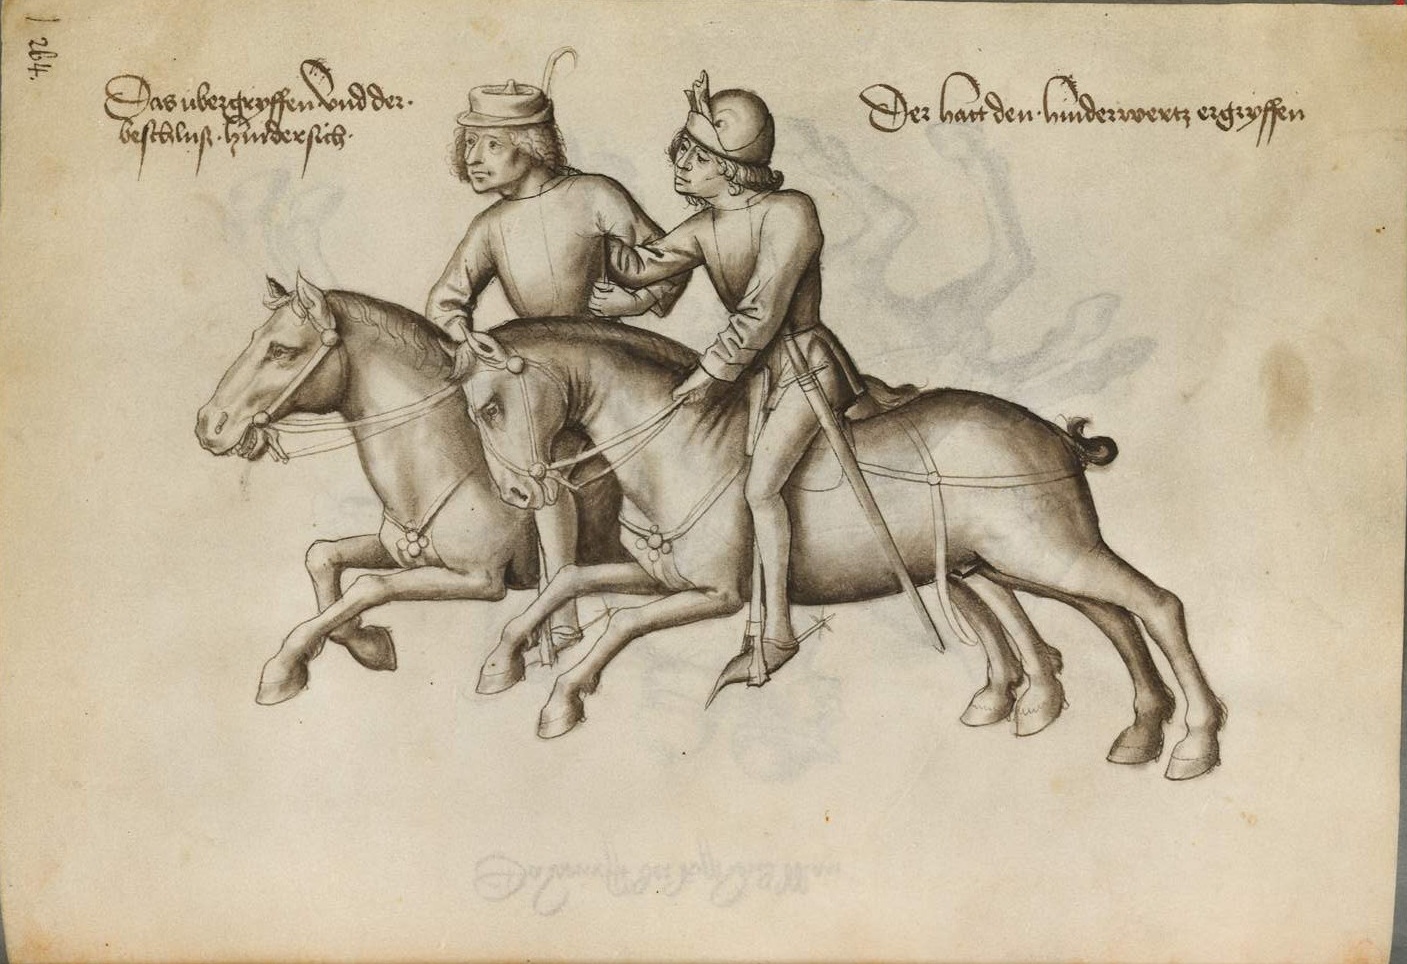 264.
Das übergryffen vnd der·
beschluß · hindersich·
Der hatt den · hinderwertz ergryffen